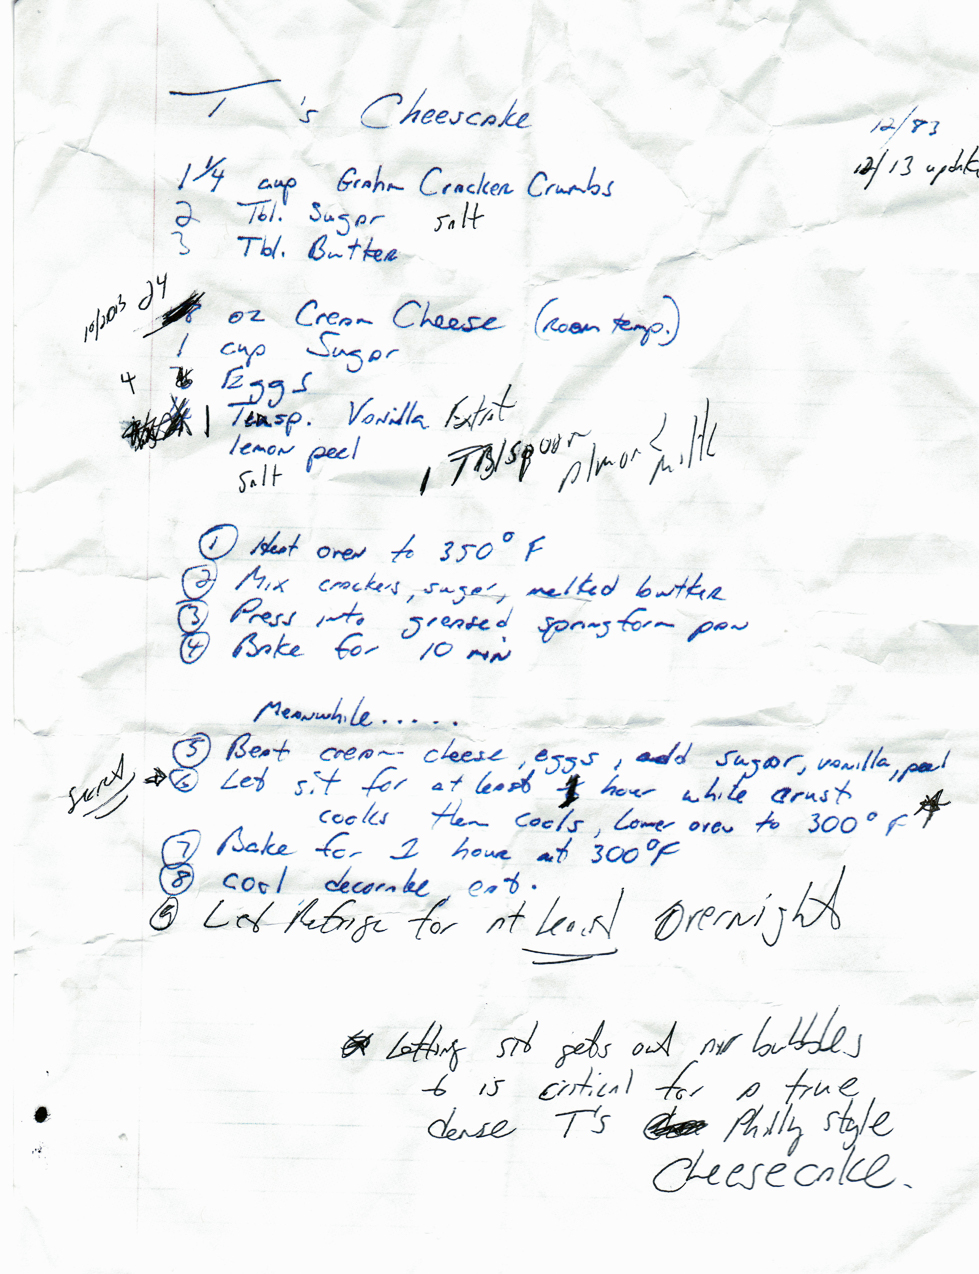 T's Cheescake
12/83
12/13 update
1 1/4 cup Grahm Cracker Crumbs
2 Tbl. Sugar
salt
3 Tbl. Butter
10/2013 24
oz Cream Cheese (room temp.)
1 cup Sugar
4 Eggs
1 Teasp. Vanilla Extrt
lemon peel
1 TBlspoon almond milk
salt
① Heat oven to 350° F
② Mix crackers, sugar, melted butter
③ Press into greased springform pan
④ Bake for 10 min
Meanwhile.....
⑤ Beat cream cheese, eggs, add sugar, vanilla, peel
Secret → ⑥ Let sit for at least 1 hour while crust
cooks then cools, lower oven to 300° F *
⑦ Bake for 1 hour at 300°F
⑧ cool decorate, eat.
⑨ Let Refrige for at least overnight
* Letting sit gets out air bubbles
& is critical for a true
dense T's Philly style
Cheesecake.